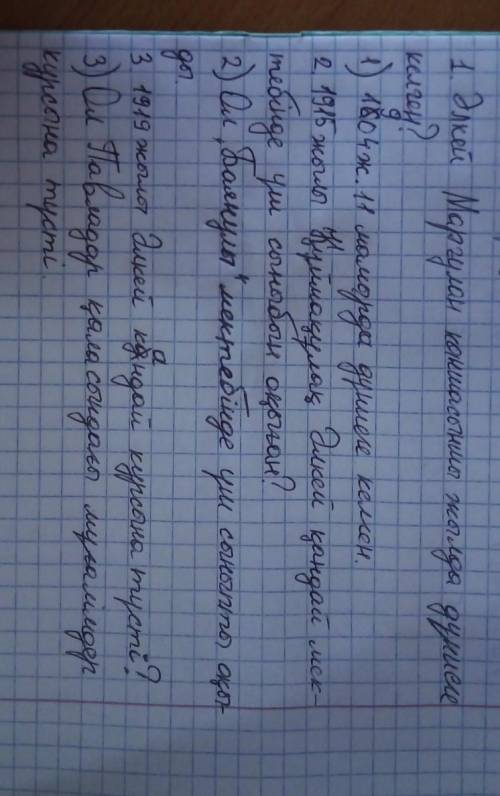 1. Әлкей Марғұлан қаншасыншы жылда дүниеге
келген?
1) 1804ж. 11 мамырда дүниеге келген.
2. 1915 жылы Құймақұлақ Әлкей қандай мек-
тебінде үш сыныбын оқыған?
2) Ол „Баянқұлы" мектебінде үш сыныпты оқы-
ды.
3. 1919 жылы Әлкей қандай курсына түсті?
3) Ол Павлодар қаласындағы мұғалімдер
курсына түсті.